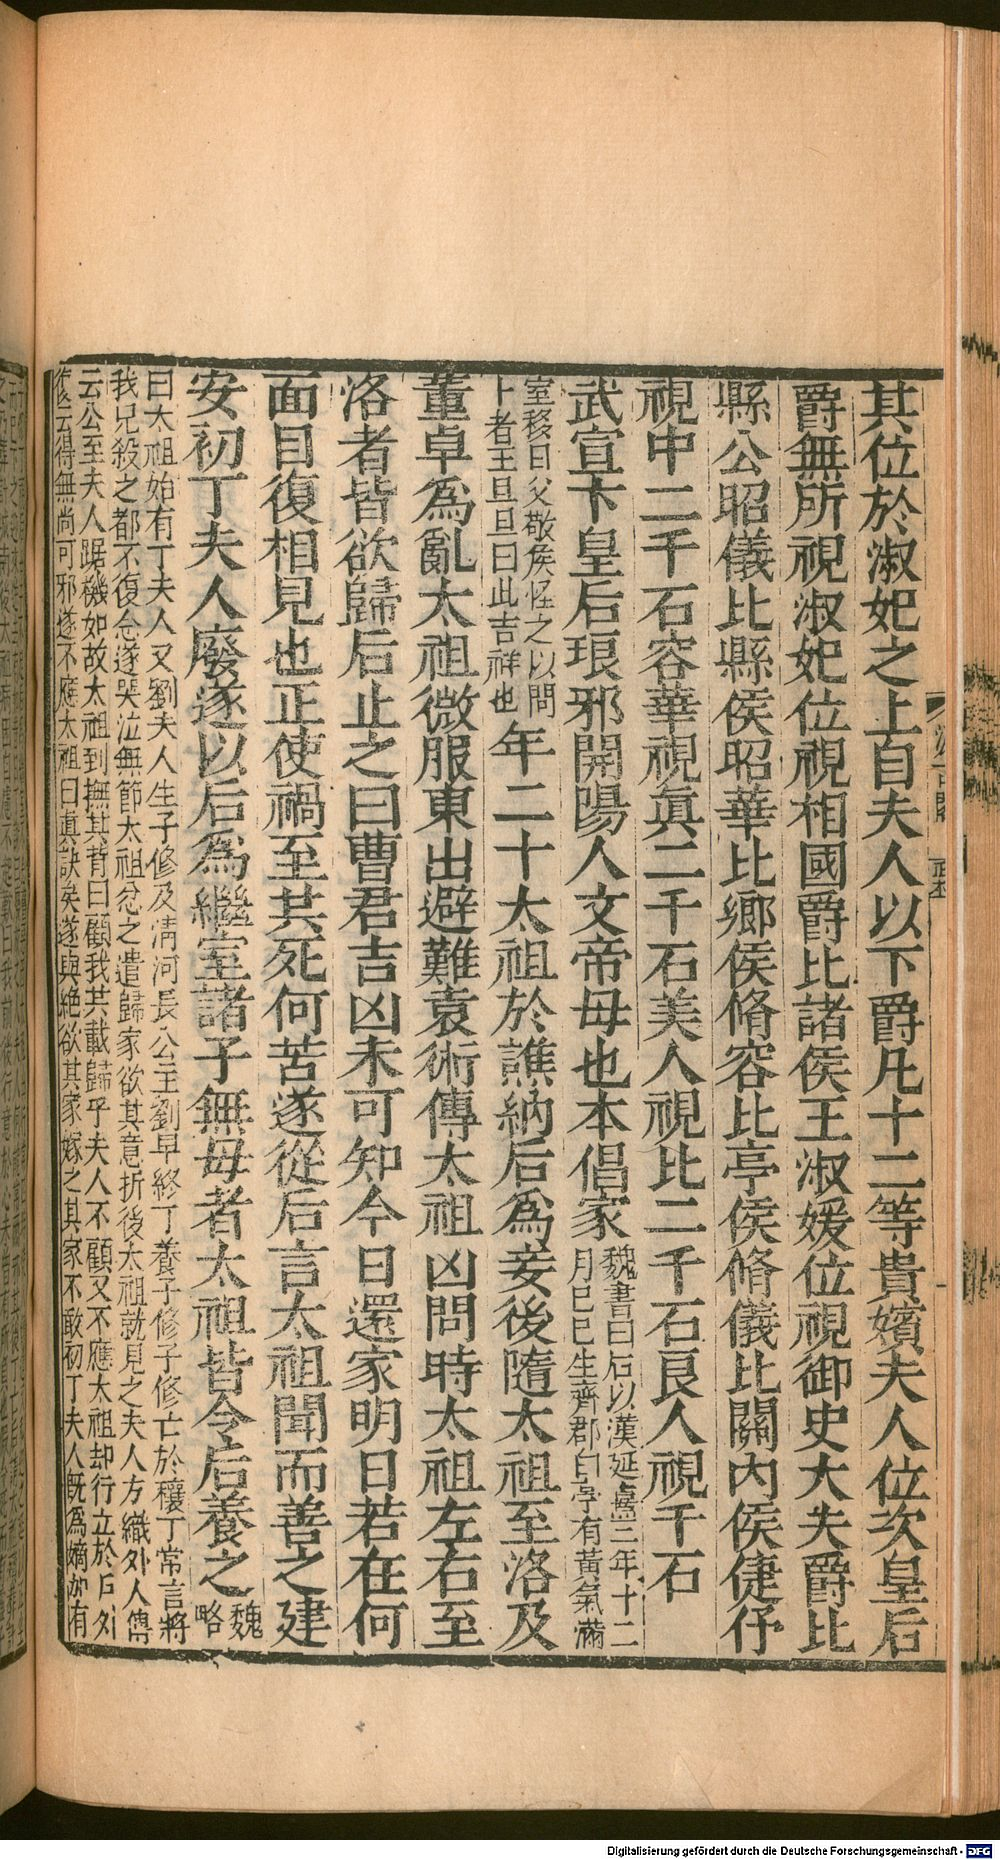 其位於淑妃之上自夫人以下爵凡十二等貴嬪夫人位次皇后
爵無所視淑妃位視相國爵比諸侯王淑媛位視御史大夫爵比
縣公昭儀比縣侯昭華比鄉侯脩容比亭侯脩儀比關內侯倢伃
視中二千石容華視眞二千石美人視比二千石良人視千石
武宣卞皇后琅邪開陽人文帝母也本倡家
魏書曰后以漢延熹三年十二
月己巳生齊郡白亭有黃氣滿
室移日父敬侯怪之以問
卜者王旦旦曰此吉祥也
年二十太祖於譙納后爲妾後隨太祖至洛及
董卓爲亂太祖微服東出避難袁術傳太祖凶問時太祖左右至
洛者皆欲歸后止之曰曹君吉凶未可知今日還家明日若在何
面目復相見也正使禍至其死何苦遂從后言太祖聞而善之建
安初丁夫人廢遂以后爲繼室諸子無母者太祖皆令后養之
魏
略
曰太祖始有丁夫人又劉夫人生子修及清河長公主劉早終丁養子修子修亡於穰丁常言將
我兒殺之都不復念遂哭泣無節太祖忿之遣歸家欲其意折後太祖就見之夫人方織外人傳
云公至夫人踞機如故太祖到撫其背曰顧我共載歸乎夫人不顧又不應太祖却行立於戶外
復云得無尚可邪遂不應太祖曰眞訣矣遂與絕欲其家嫁之其家不敢初丁夫人旣爲嫡加有
Digitalisierung gefördert durch die Deutsche Forschungsgemeinschaft - DFG